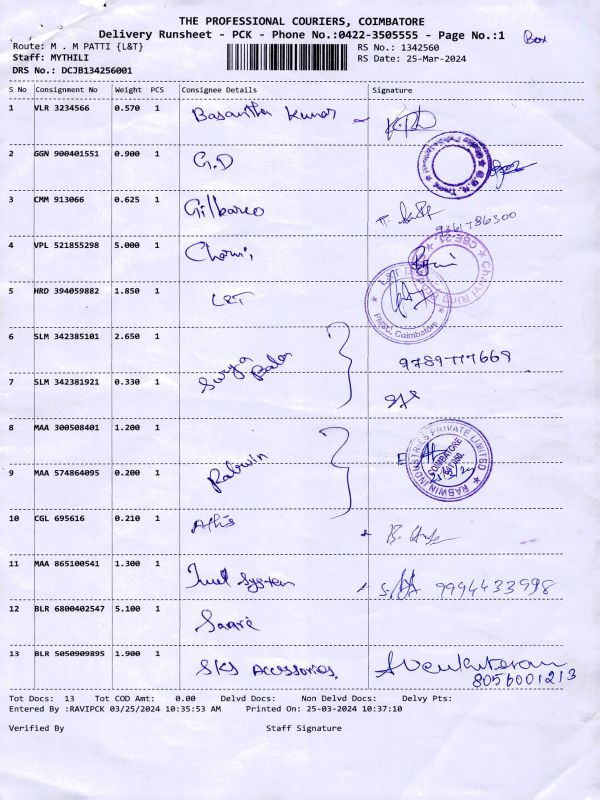 THE PROFESSIONAL COURIERS, COIMBATORE
Delivery Runsheet - PCK - Phone No.:0422-3505555 - Page No.:1 Box
Route: M . M PATTI {L&T} RS No.: 1342560
Staff: MYTHILI RS Date: 25-Mar-2024
DRS No.: DCJB134256001
S No Consignment No Weight PCS Consignee Details Signature
1 VLR 3234566 0.570 1 Basantha Kumar
2 GGN 900401551 0.900 1 G.D
3 CMM 913066 0.625 1 Gilbarco 9361786300
4 VPL 521855298 5.000 1
5 HRD 394059882 1.850 1 L&T
L&T
PMSC, Coimbatore
6 SLM 342385101 2.650 1 9789777669
Surya Bala
7 SLM 342381921 0.330 1
8 MAA 300508401 1.200 1
RABWIN INDUSTRIES PRIVATE LIMITED
COIMBATORE
Rabwin
9 MAA 574864095 0.200 1
10 CGL 695616 0.210 1
11 MAA 865100541 1.300 1 Juul System 9994433998
12 BLR 6800402547 5.100 1 Saare
13 BLR 5050909895 1.900 1 SKS Accessories. 8056001213
Tot Docs: 13 Tot COD Amt: 0.00 Delvd Docs: Non Delvd Docs: Delvy Pts:
Entered By :RAVIPCK 03/25/2024 10:35:53 AM Printed On: 25-03-2024 10:37:10
Verified By Staff Signature